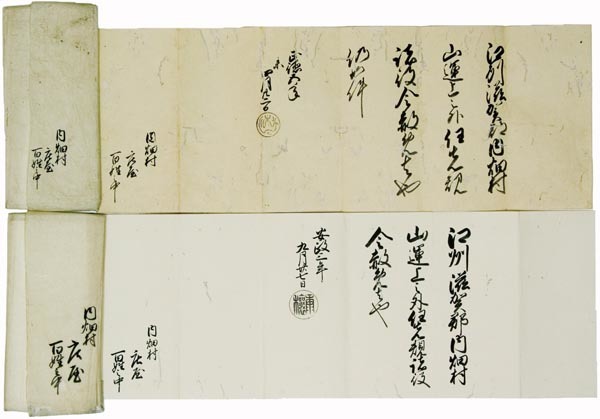 江州滋賀郡内畑村
山運上之外任先規
諸役令赦免者也
仍如件
正徳五年
未
内畑村
庄屋
百姓中
内畑村
庄屋
百姓中
江州滋賀郡内畑村
山運上之外任先規諸役
令赦免者也
安政二年
九月廿七日
内畑村
庄屋
百姓中
内畑村
庄屋
百姓中